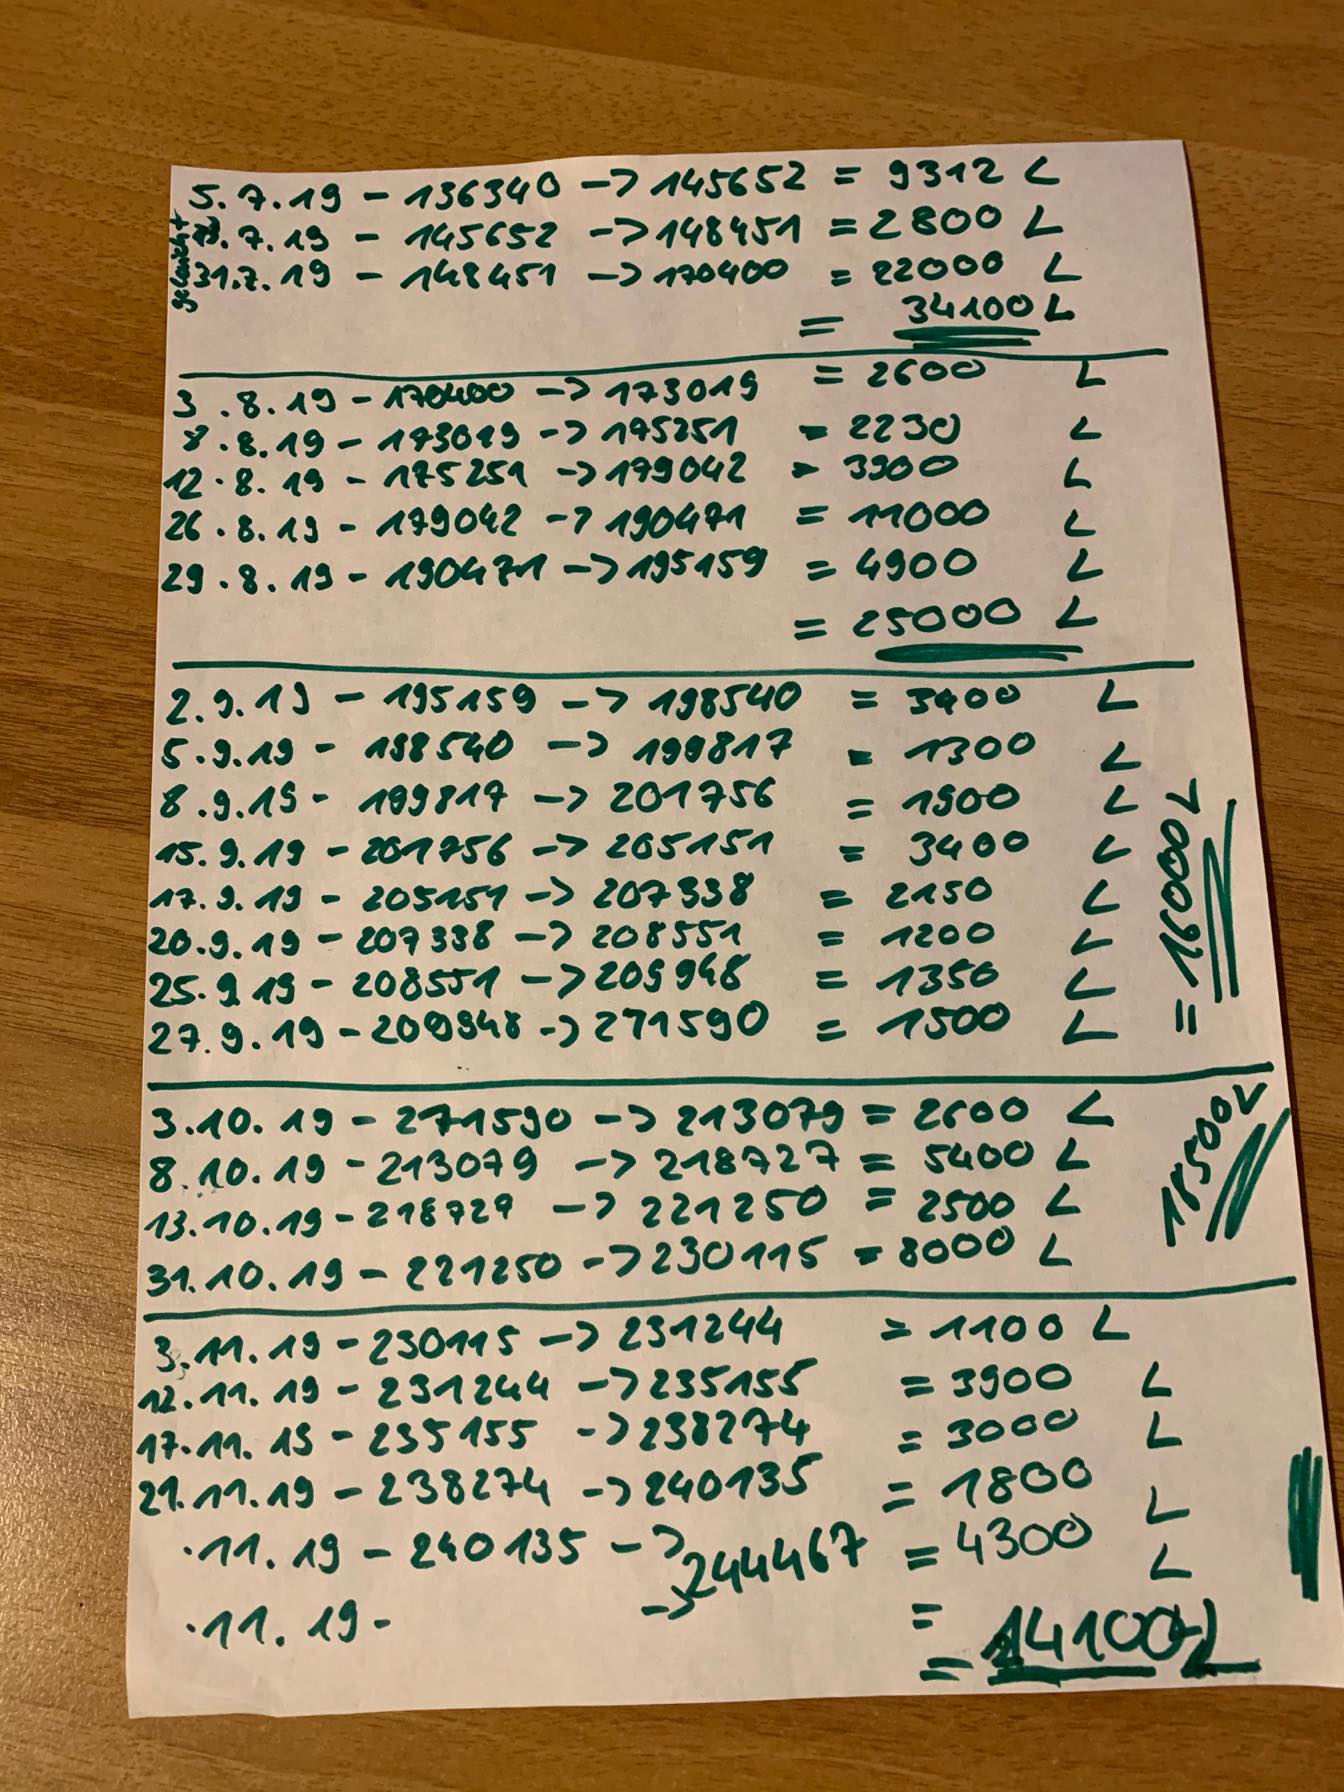 5.7.19 - 136340 -> 145652 = 9312 L
.7.19 - 145652 -> 148451 = 2800 L
31.7.19 - 148451 -> 170400 = 22000 L
= 34100 L
3.8.19 - 170400 -> 173019 = 2600 L
8.8.19 - 173019 -> 175251 = 2230 L
12.8.19 - 175251 -> 179042 = 3900 L
26.8.19 - 179042 -> 190471 = 11000 L
29.8.19 - 190471 -> 195159 = 4900 L
= 25000 L
2.9.19 - 195159 -> 198540 = 3400 L
5.9.19 - 198540 -> 199817 = 1300 L
8.9.19 - 199817 -> 201756 = 1900 L
15.9.19 - 201756 -> 205151 = 3400 L
17.9.19 - 205151 -> 207338 = 2150 L
20.9.19 - 207338 -> 208551 = 1200 L
25.9.19 - 208551 -> 209948 = 1350 L
27.9.19 - 209948 -> 271590 = 1500 L
= 16000 L
3.10.19 - 271590 -> 213079 = 2600 L
8.10.19 - 213079 -> 218727 = 5400 L
13.10.19 - 218727 -> 221250 = 2500 L
31.10.19 - 221250 -> 230115 = 8000 L
18500 L
3.11.19 - 230115 -> 231244 = 1100 L
12.11.19 - 231244 -> 235155 = 3900 L
17.11.19 - 235155 -> 238274 = 3000 L
21.11.19 - 238274 -> 240135 = 1800 L
.11.19 - 240135 -> 244467 = 4300 L
.11.19 - -> =
= 14100 L